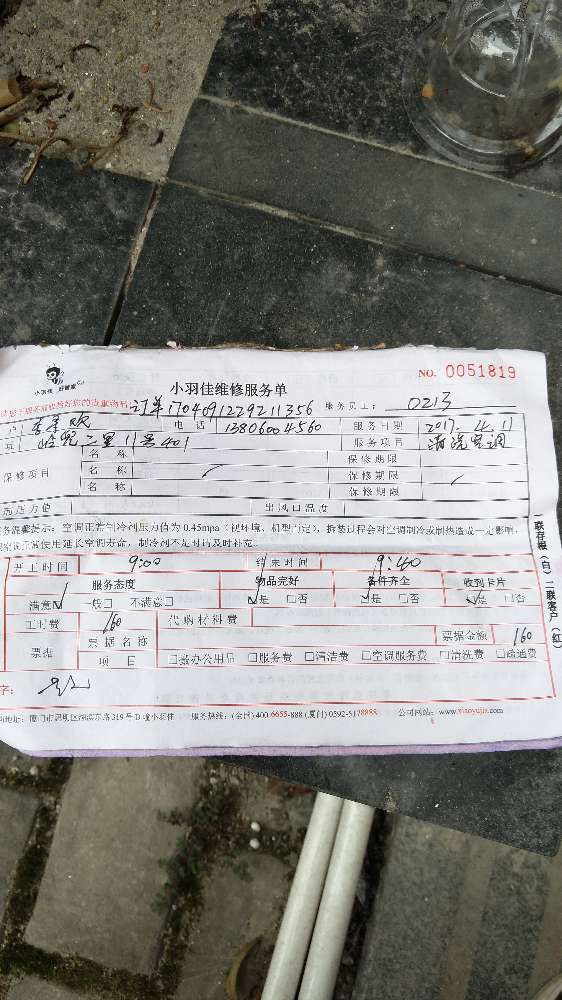 小羽佳 好管家
NO. 0051819
小羽佳维修服务单
订单 1704091229211356 服务员工： 0213
电话 13806004560 服务日期 2017.4.11
二里11号401 服务项目 清洗空调
保修项目 名称 保修期限
名称 保修期限
名称 保修期限
制冷压力值 出风口温度
空调正常制冷剂压力值为0.45mpa（视环境、机型而定），拆装过程会对空调制冷或制热造成一定影响，
使用延长空调寿命，制冷剂不足时请及时补充。
开工时间 9:00 结束时间 9:40
服务态度 物品完好 备件齐全 收到卡片
满意☑ 一般□ 不满意□ ☑是 □否 ☑是 □否 ☑是 □否
工时费 160 代购材料费
票据 票据名称 票据金额 160
项目 □数办公用品 □服务费 □清洁费 □空调服务费 □清洗费 □疏通费
字：
地址：厦门市思明区湖滨东路319号D幢小羽佳 服务热线：(全国)400-6655-888 (厦门)0592-5178888 公司网站：www.xiaoyujia.com
一联存根（白）二联客户（红）